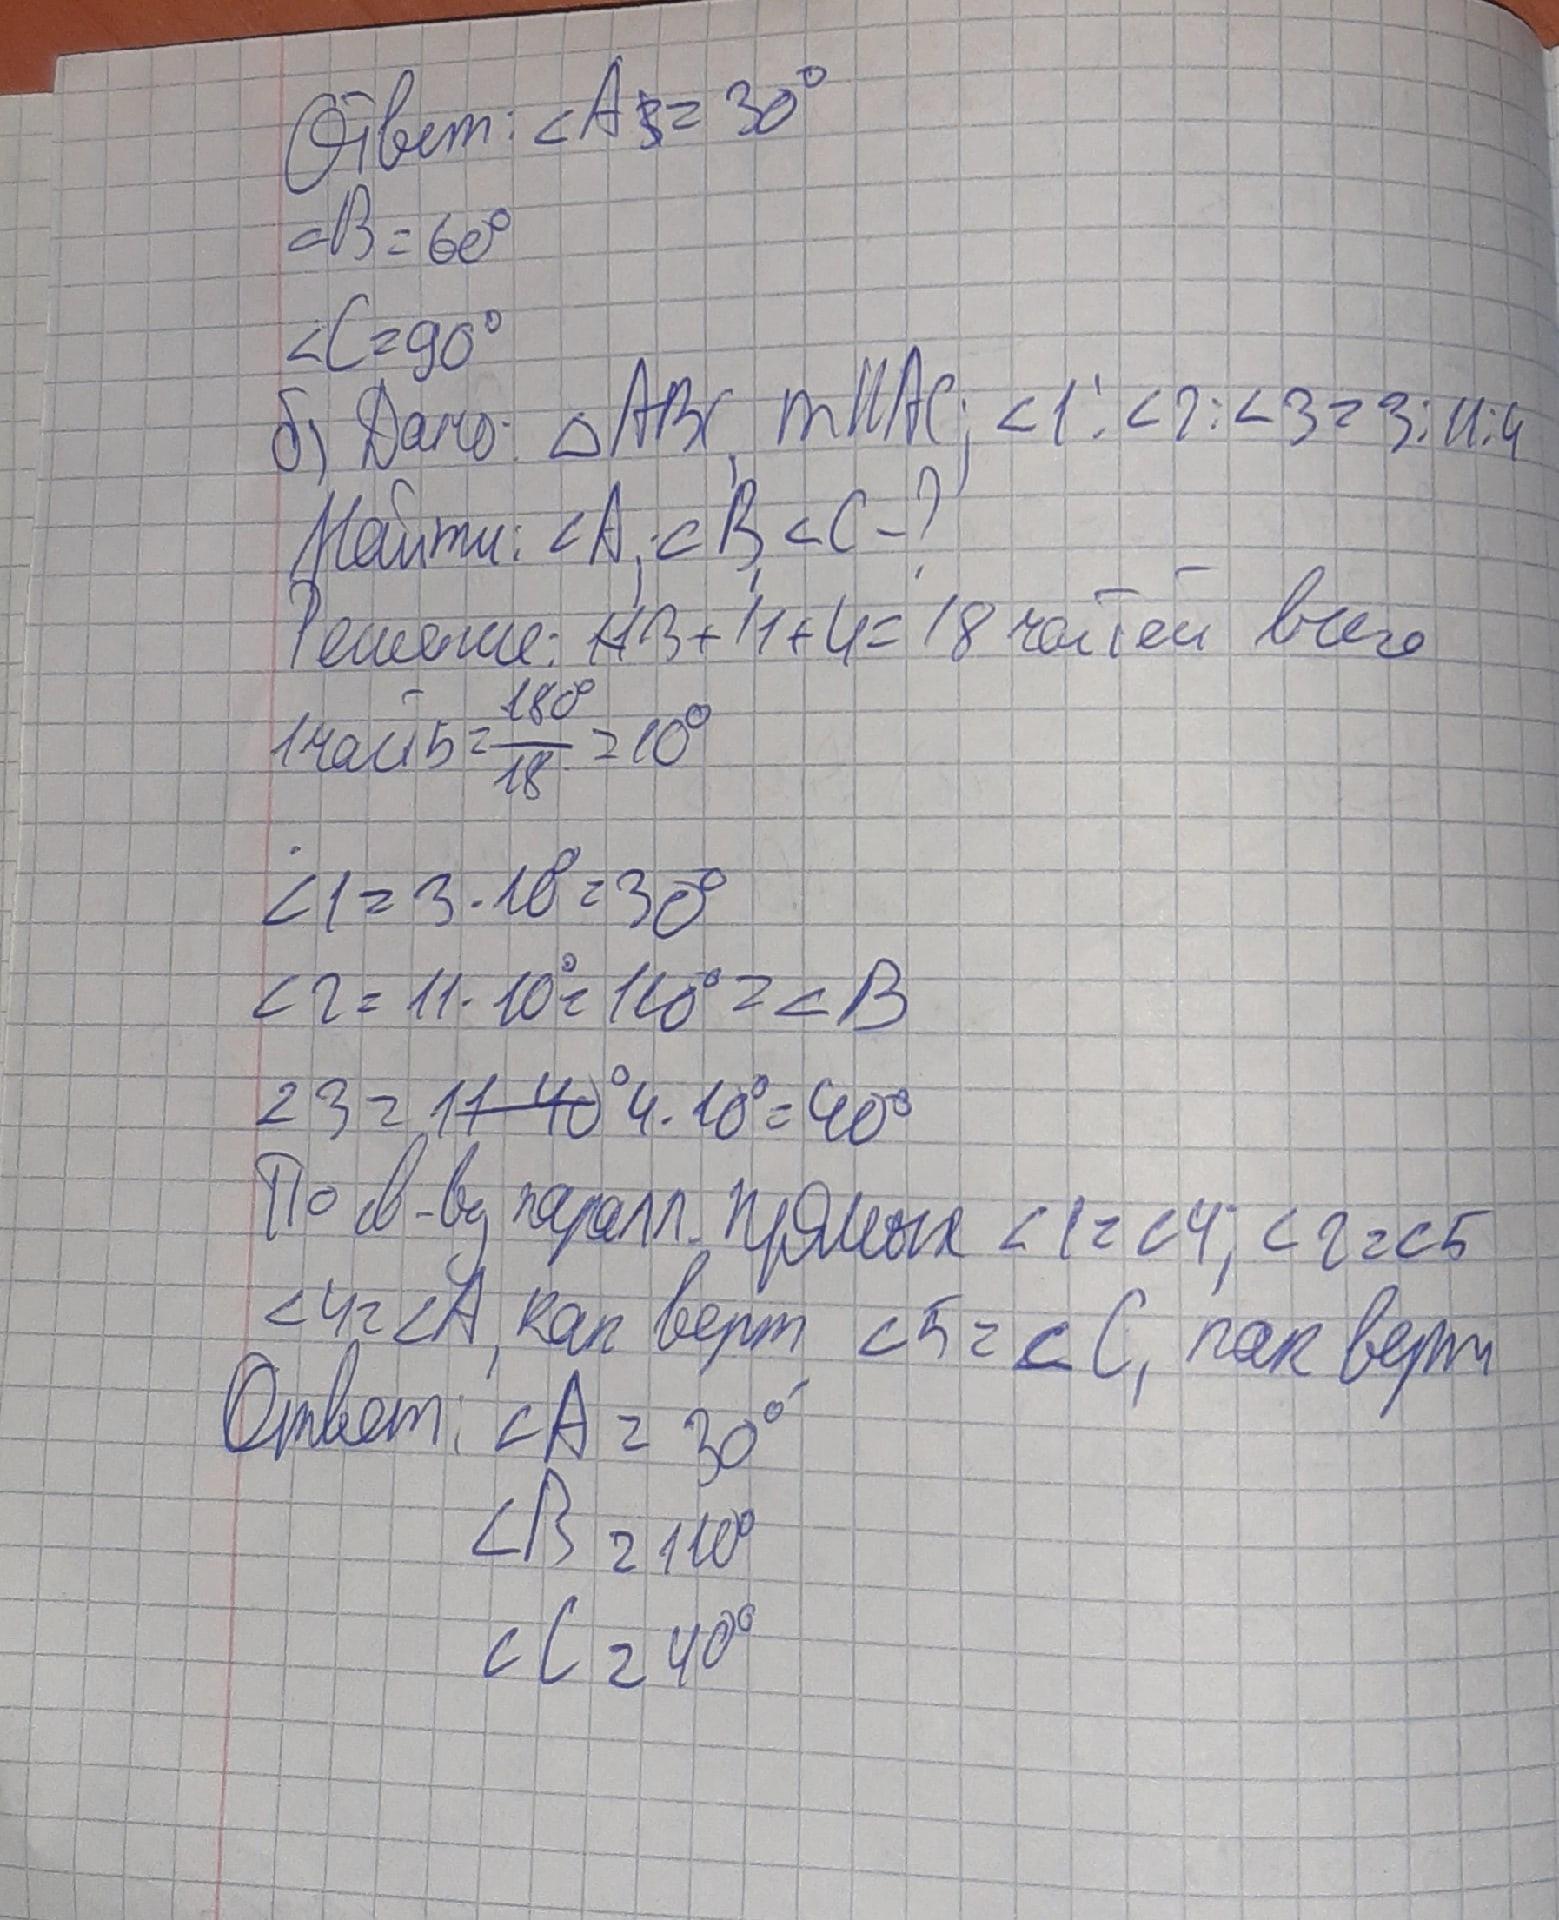 Ответ: ∠A = 30°
∠B = 60°
∠C = 90°
б) Дано: △ABC, m||AC; ∠1:∠2:∠3 = 3:11:4
Найти: ∠A, ∠B, ∠C - ?
Решение: 3+11+4 = 18 частей всего
1 часть = 180°/18 = 10°
∠1 = 3·10° = 30°
∠2 = 11·10° = 110° = ∠B
∠3 = 4·10° = 40°
По св-ву паралл. прямых ∠1 = ∠4; ∠2 = ∠5
∠4 = ∠A, как верт ∠5 = ∠C, как верт
Ответ: ∠A = 30°
∠B = 110°
∠C = 40°